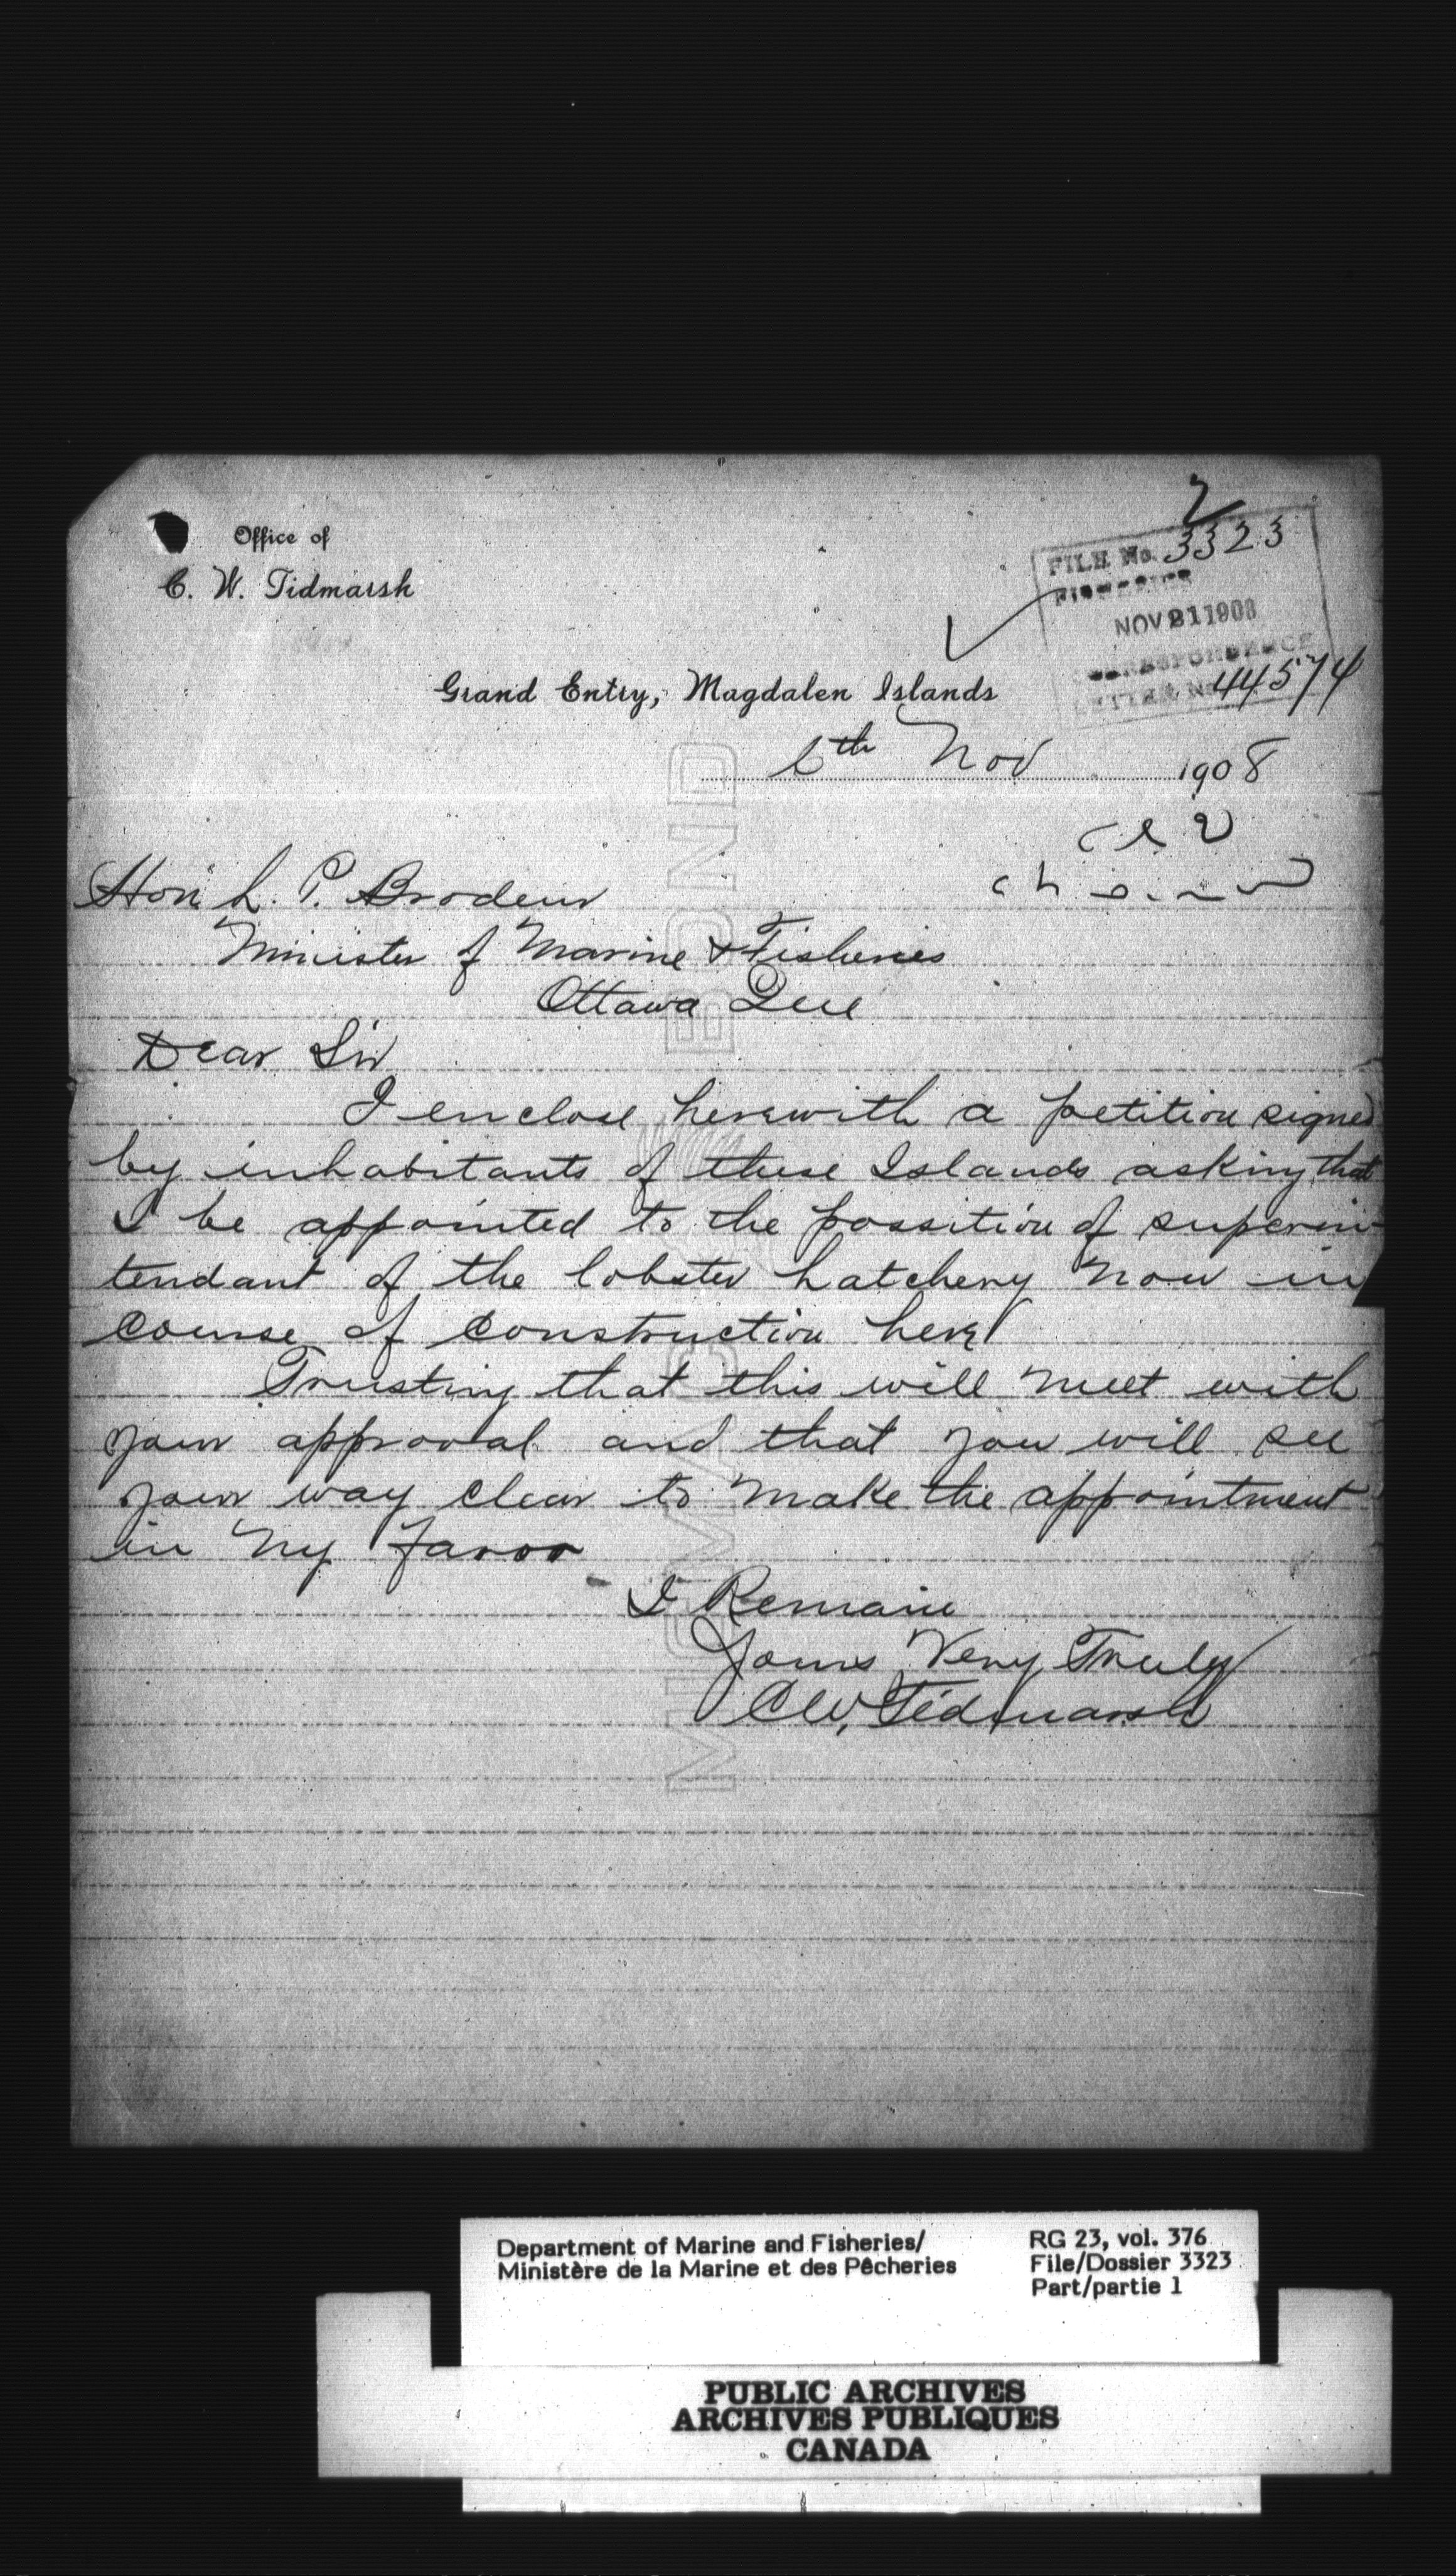 Office of
C. W. Tidmarsh
FILE No. 3323
FISHERIES
NOV 21 1908
CORRESPONDENCE
LETTER No 44574
Grand Entry, Magdalen Islands
6th Nov 1908
Hon L. P. Brodeur
Minister of Marine & Fisheries
Ottawa Que
Dear Sir
I enclose herewith a petition signed
by inhabitants of these Islands asking that
I be appointed to the possition of superin-
tendant of the lobster hatchery now in
course of construction here
Trusting that this will meet with
your approval and that you will see
your way clear to make the appointment
in my favor
I Remain
Yours Very Truly
C W. Tidmarsh
MIGMAC BOND
Department of Marine and Fisheries/
Ministère de la Marine et des Pêcheries
RG 23, vol. 376
File/Dossier 3323
Part/partie 1
PUBLIC ARCHIVES
ARCHIVES PUBLIQUES
CANADA